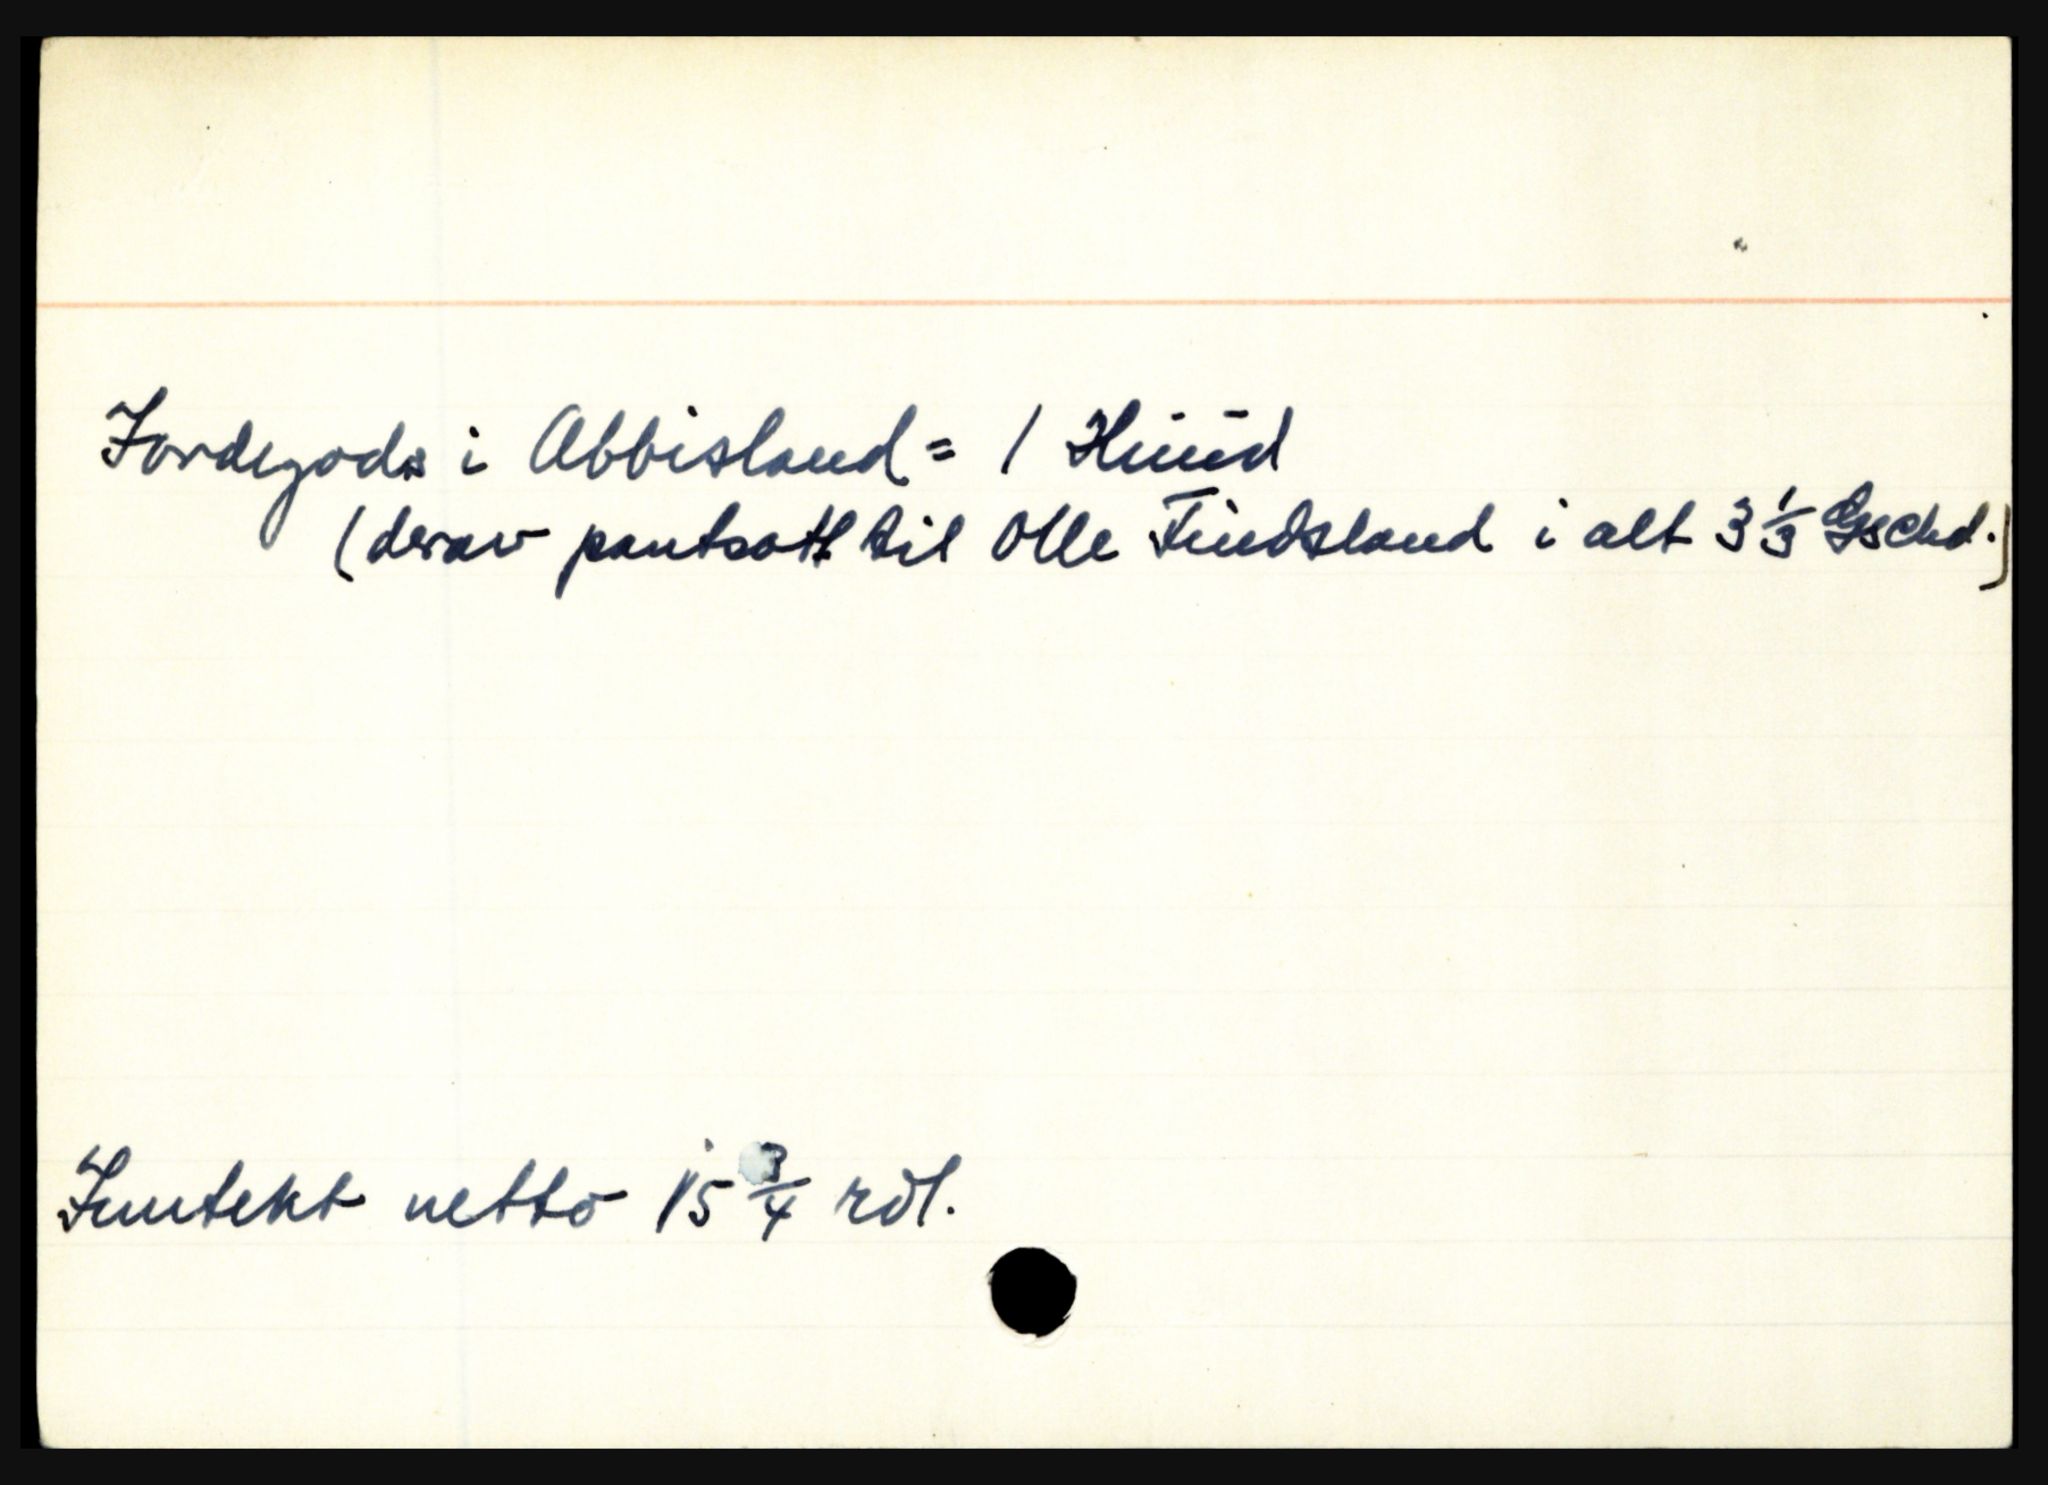 Jordegods i Abbisland = 1 Huud
(derav pantsatt til Olle Findsland i alt 3 1/3 Gschd.)
Inntekt netto 15 3/4 rdl.